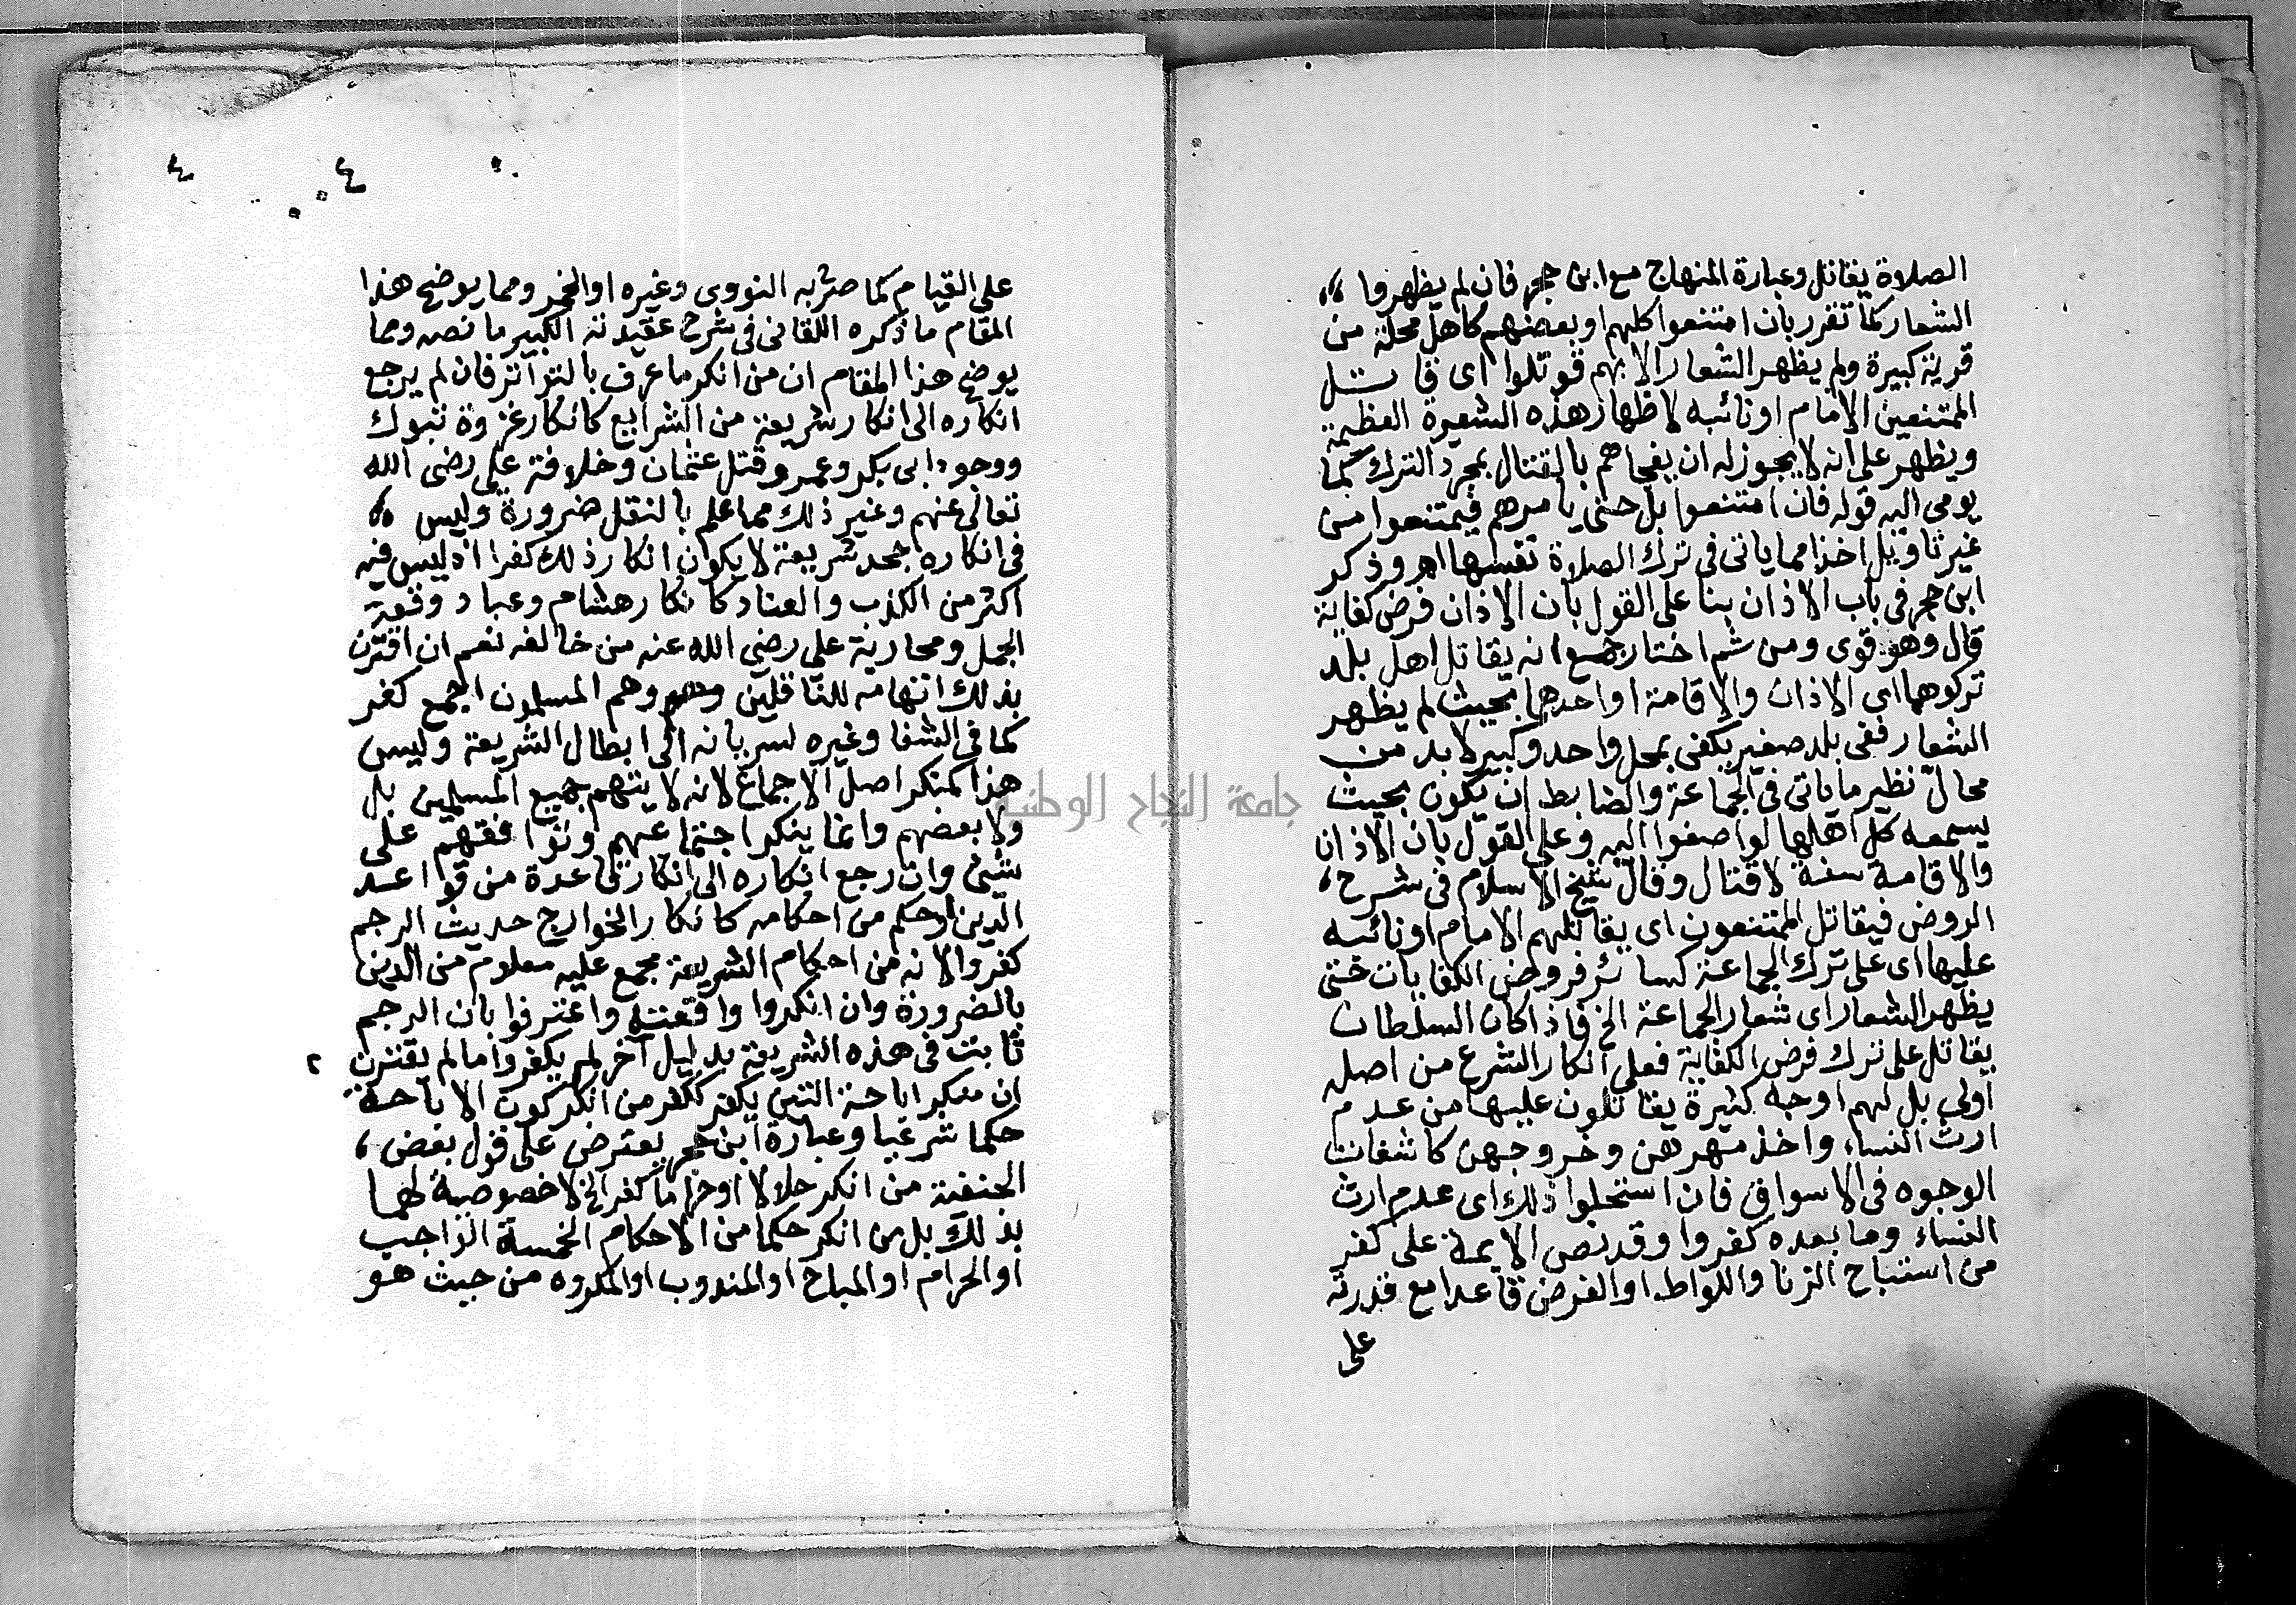 الصلاة يقاتل وعبارة المنهاج مع ابن حجر فان لم يظهروا
الشعار كما تقرر بان امتنعوا كلهم او بعضهم كاهل محلة من
قرية كبيرة ولم يظهر الشعار الا بهم قوتلوا اى قاتل
الممتنعين الامام او نائبه لاظهار هذه الشعيرة العظيمة
ويظهر على انه لا يجوز له ان يفجاهم بالقتال بمجرد الترك كما
يومى اليه قوله فان امتنعوا بل حتى يامرهم فيمتنعوا من
غير تاويل اخذا مما ياتى فى ترك الصلاة نفسها اهـ وذكر
ابن حجر فى باب الاذان بنا على القول بان الاذان فرض كفاية
قال وهو قوى ومن ثم اختار جمع انه يقاتل اهل بلد
تركوهما اى الاذان والاقامة او احدهما بحيث لم يظهر
الشعار ففى بلد صغير يكفى بمحل واحد وكبير لا بد من
محال نظير ما ياتى فى الجماعة والضابط ان يكون بحيث
يسمعه كل اهلها لو اصغوا اليه وعلى القول بان الاذان
والاقامة سنة لا قتال وقال شيخ الاسلام فى شرح
الروض فيقاتل الممتنعون اى يقاتلهم الامام او نائبه
عليها اى على ترك الجماعة كسائر فروض الكفايات حتى
يظهر الشعار اى شعار الجماعة الخ فاذا كان السلطان
يقاتل على ترك فرض الكفاية فعلى انكار الشرع من اصله
اولى بل لهم اوجه كثيرة يقاتلون عليها من عدم
ارث النساء واخذ مهرهن وخروجهن كاشفات
الوجوه فى الاسواق فان استحلوا ذلك اى عدم ارث
النساء وما بعده كفروا وقد نص الايمة على كفر
من استباح الزنا واللواط او الفرض قاعدا مع قدرته
على
٤ ٤
على القيام كما صرح به النووى وغيره او الخمر ومما يوضح هذا
المقام ما ذكره اللقانى فى شرح عقيدته الكبير ما نصه ومما
يوضح هذا المقام ان من انكر ما عرف بالتواتر فان لم يرجع
انكاره الى انكار شريعة من الشرايع كانكار غزوة تبوك
ووجود ابى بكر وعمر وقتل عثمان وخلافة على رضى الله
تعالى عنهم وغير ذلك مما علم بالنقل ضرورة وليس
فى انكاره جحد شريعة لا يكون انكار ذلك كفرا اذ ليس فيه
اكثر من الكذب والعناد كانكار هشام وعباد وقعة
الجمل ومحاربة على رضى الله عنه من خالفه نعم ان اقترن
بذلك اتهامه للناقلين وهم المسلمون اجمع كفر
كما فى الشفا وغيره لسريانه الى ابطال الشريعة وليس
هذا كمنكر اصل الاجماع لانه لا يتهم جميع المسلمين بل
ولا بعضهم وانما ينكر اجتماعهم وتوافقهم على
شيئ وان رجع انكاره الى انكار قاعدة من قواعد
الدين او حكم من احكامه كانكار الخوارج حديث الرجم
كفروا لانه من احكام الشريعة مجمع عليه معلوم من الدين
بالضرورة وان انكروا واقعته واعترفوا بان الرجم
ثابت فى هذه الشريعة بدليل آخر لم يكفروا ما لم يقترن ٢
ان منكر اباحة التين يكفر ككفر من انكر كون الاباحة
حكما شرعيا وعبارة ابن حجر يعترض على قول بعض
الحنفية من انكر حلالا او حراما كفر الخ لا خصوصية لهما
بذلك بل من انكر حكما من الاحكام الخمسة الواجب
او الحرام او المباح او المندوب او المكروه من حيث هو
جامعة النجاح الوطنية